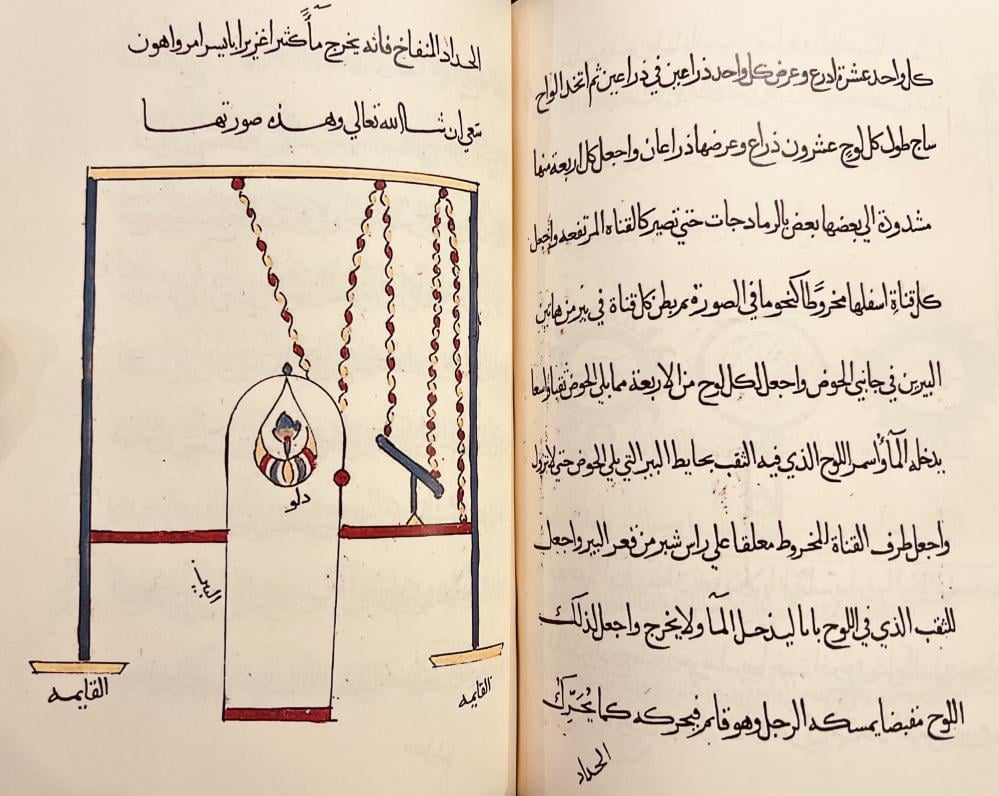 كل واحد عشرة اذرع وعرض كل واحد ذراعين في ذراعين ثم اتخذ الواح
ساج طول كل لوح عشرون ذراع وعرضها ذراعان واجعل كل اربعة منها
مشدودة الي بعضها بعض بالرمادجات حتي تصير كالقناه المرتفعه واجعل
كل قناة اسفلها مخروطا كنحو ما في الصورة ثم بطن كل قناة في بير من هاتين
البيرين في جانبي الحوض واجعل لكل لوح من الاربعة مما يلي الحوض ثقبا واسعا
يدخله المآ وأسمر اللوح الذي فيه الثقب بحايط البير التي يلي الحوض حتي لا تزول
واجعل طرف القناة المخروط معلقا علي راس شبر من قعر البير واجعل
للثقب الذي في اللوح بابا ليدخل المآ ولا يخرج واجعل لذلك
اللوح مقبضا يمسكه الرجل وهو قايم فيحركه كما يُحَرِّك
الحداد
الحداد النفاخ فانه يخرج مآً كثيرا غزيرا بايسر امر واهون
سعي ان شا الله تعالي وهذه صورتها
دلو
البير
القايمه
القايمه